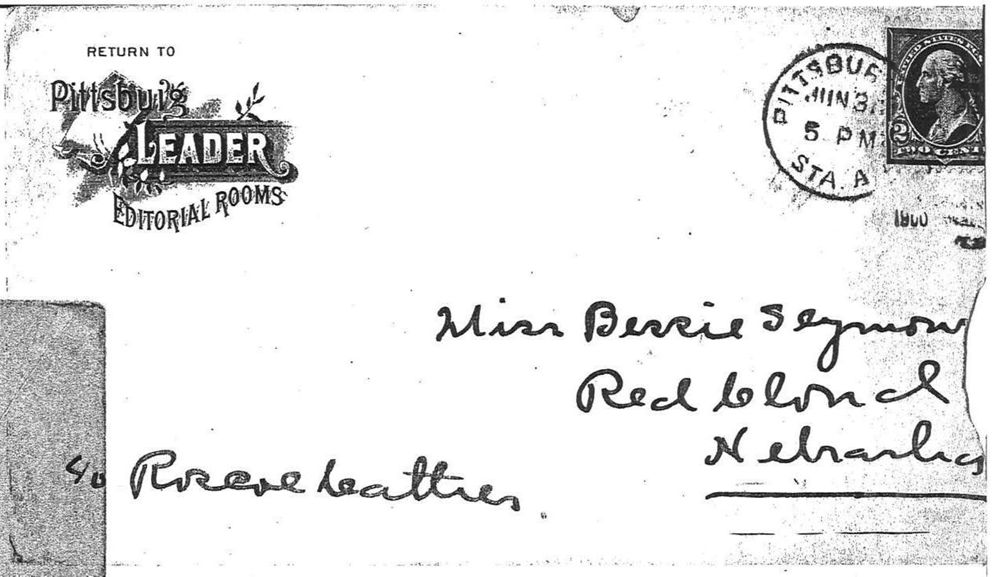 RETURN TO
Pittsburg
LEADER
EDITORIAL ROOMS
PITTSBUR
JUN 3
5 PM
STA. A
UNITED STATES
2
TWO CENT
1900
Miss Bessie Seymour
Red Cloud
Nebraska
c/o Roscoe Cathers